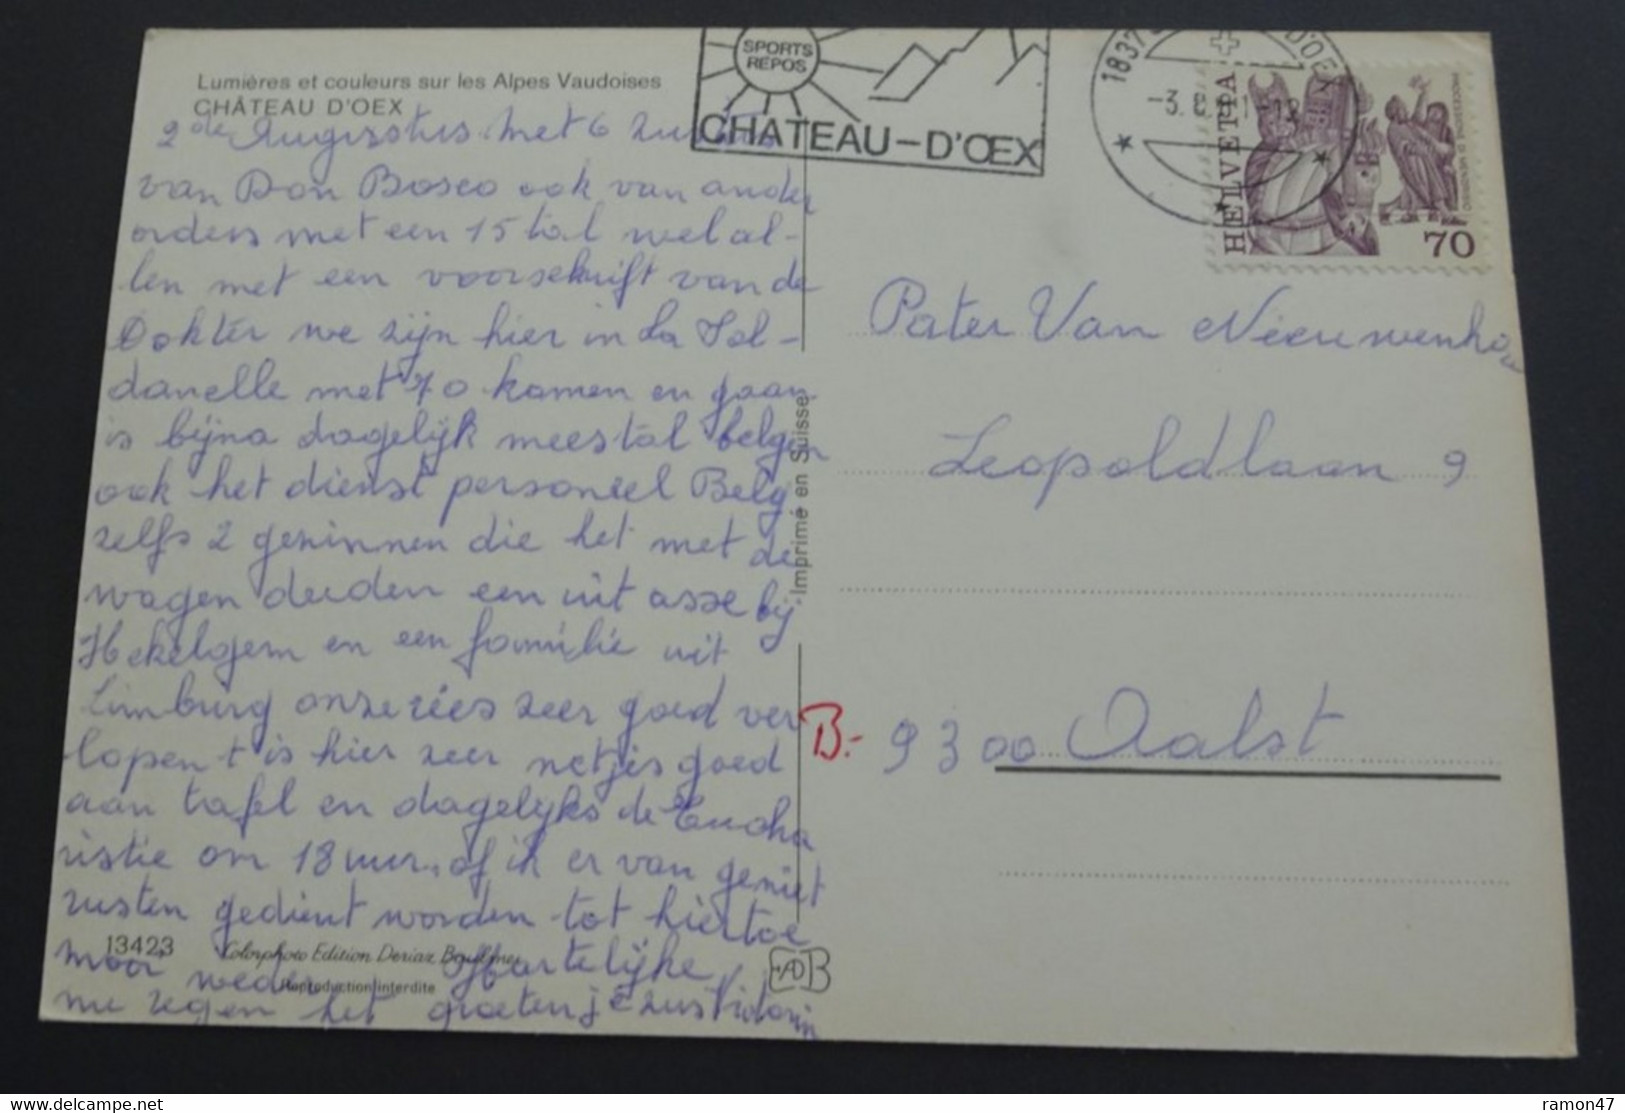 Lumières et couleurs sur les Alpes Vaudoises
CHÂTEAU D'OEX
2de Augustus met 6 zusters
van Don Bosco ook van ander
orders met een 15 tal wel al-
len met een voorschrift van de
Dokter we zijn hier in La Sol-
danelle met 70 kamen en gaan
is bijna dagelijk meestal belgen
ook het dienst personeel Belg
zelfs 2 gezinnen die het met de
wagen deeden een uit asse bij
Hekelgem en een familie uit
Limburg onze reés zeer goed ver
lopen t is hier zeer netjes goed
aan tafel en dagelijks de Eucha
ristie om 18 uur. of ik er van geniet
rusten gedient worden tot hiertoe
maar weder Hartelijke
me zegen het groeten je zust
13423
Colorphoto Edition Deriaz Baulmes
Reproduction interdite
Imprimé en Suisse
SPORTS
REPOS
CHATEAU-D'ŒX
1837
D'OEX
HELVETIA
70
Pater Van Nieuwenhove
Leopoldlaan 9
B.- 9300 Aalst
ramon47